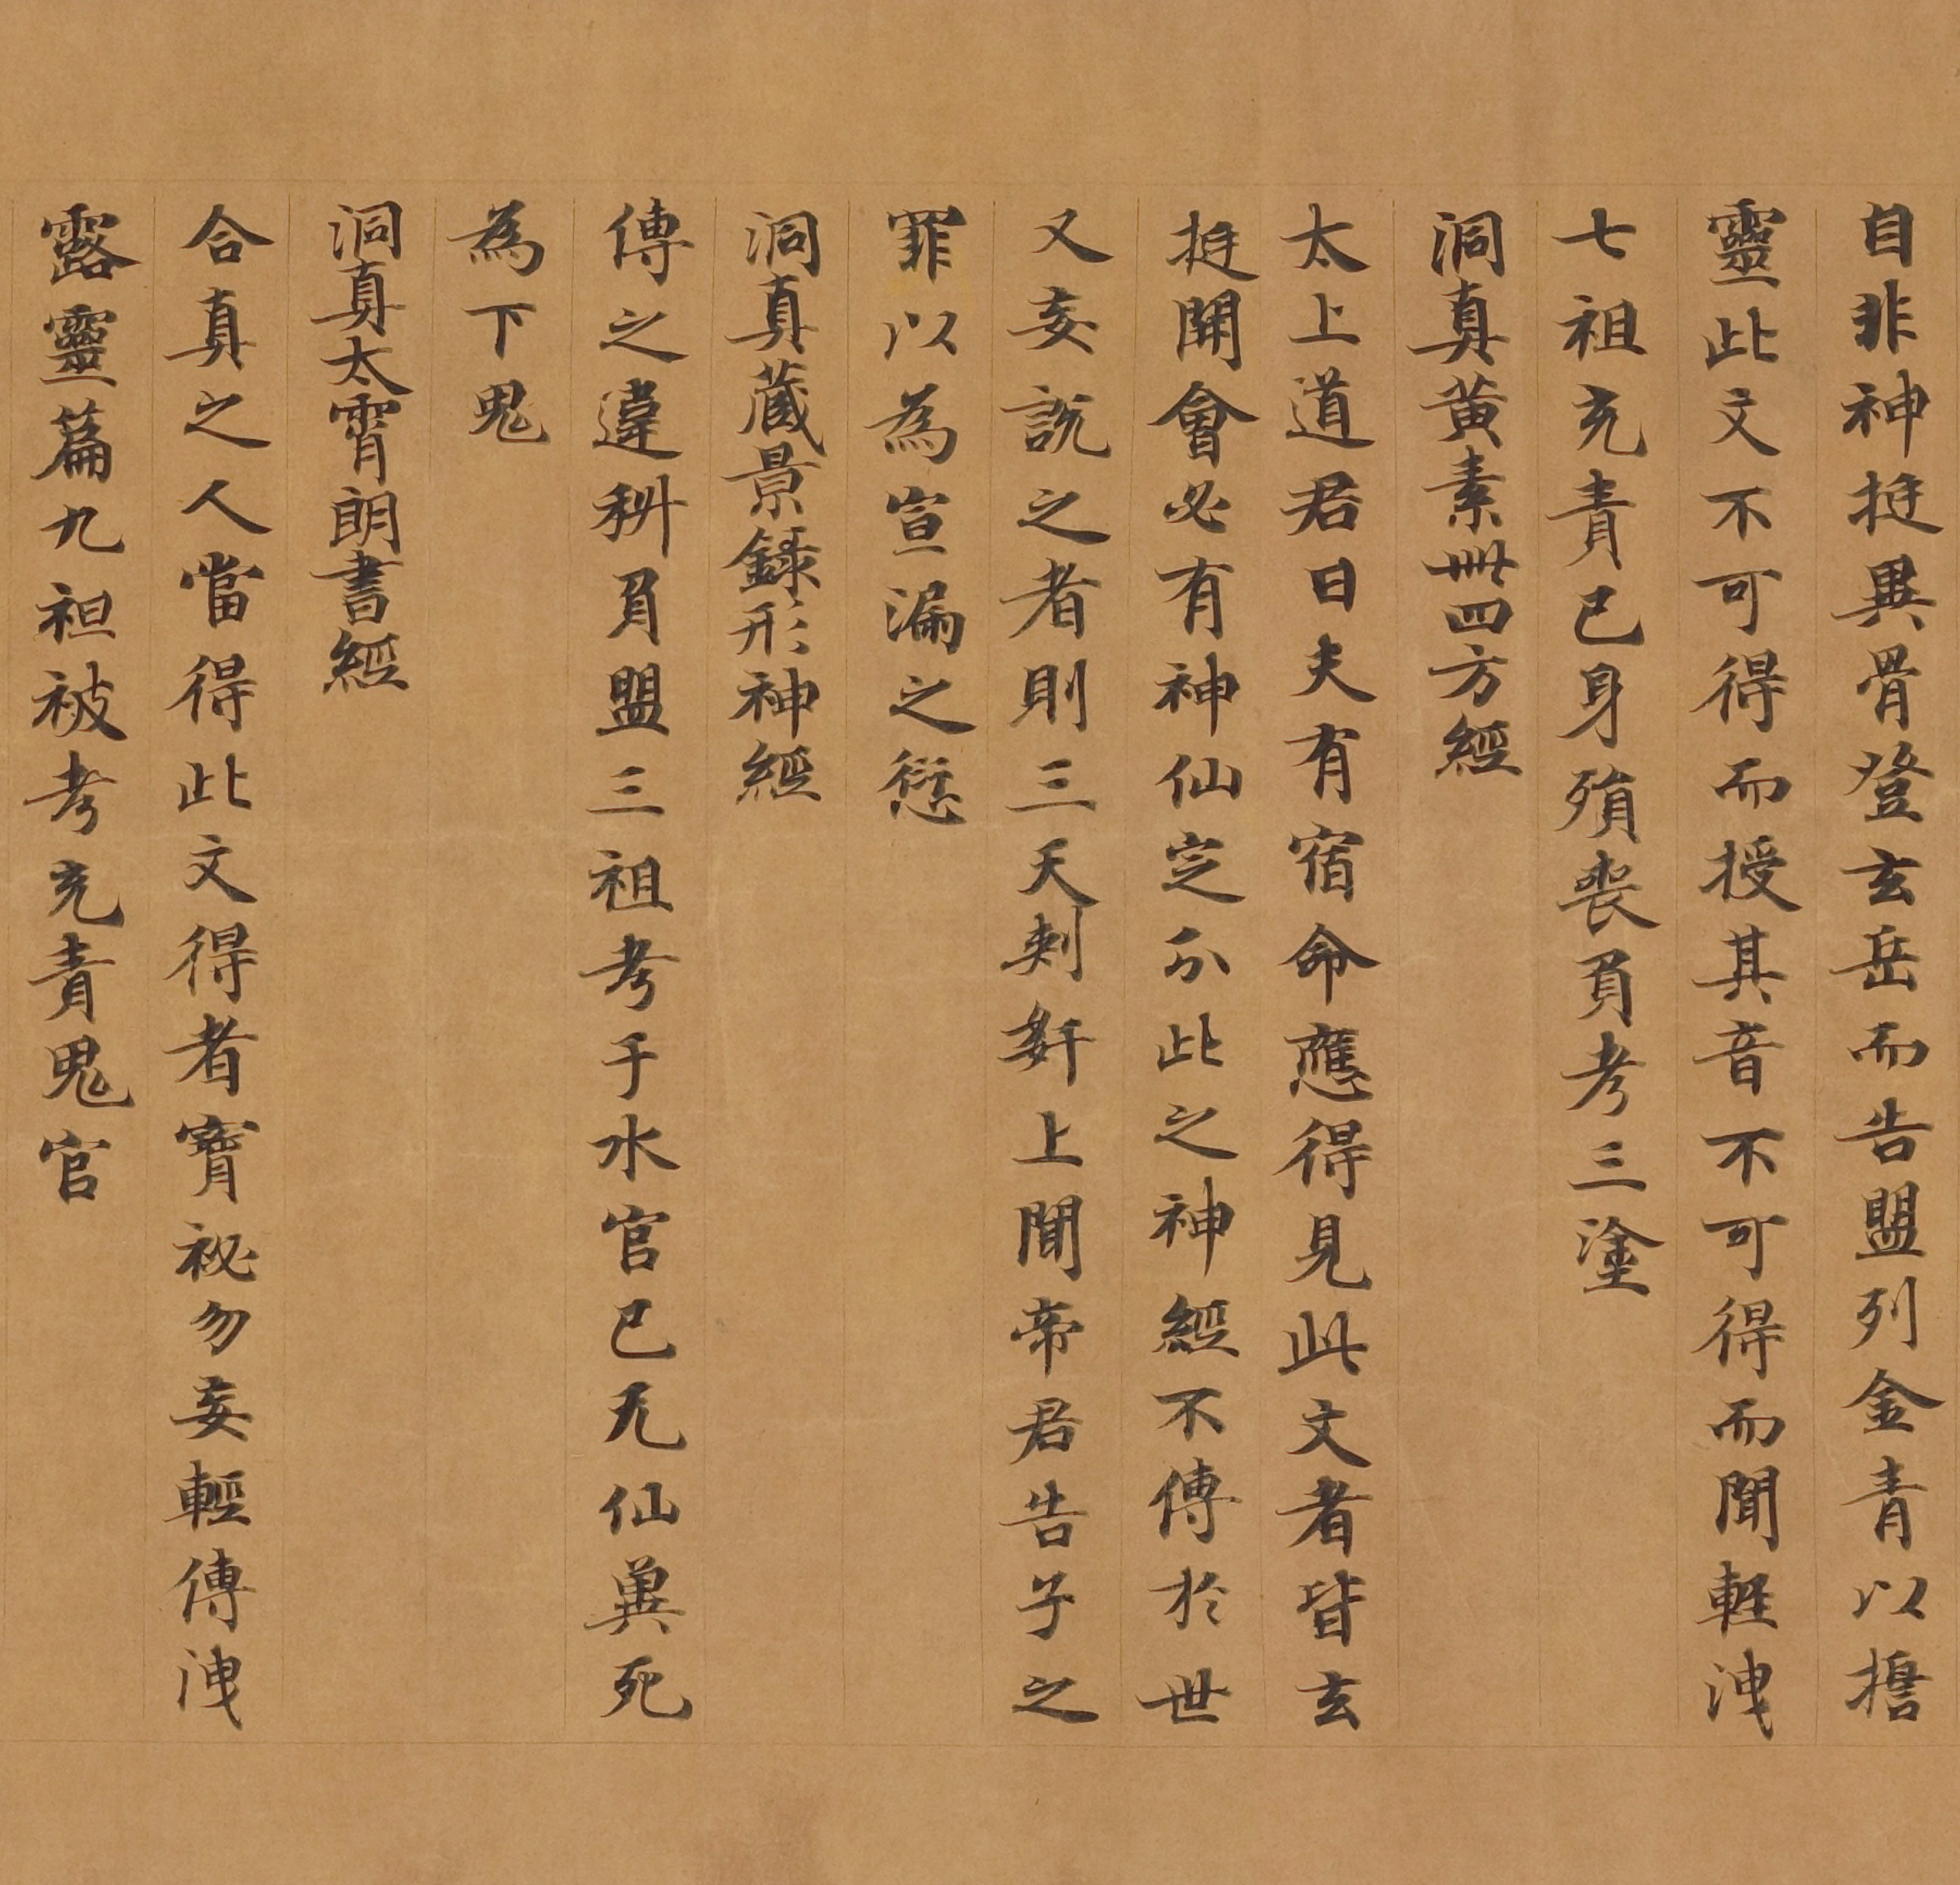 自非神挺異骨登玄岳而告盟列金青以擔
靈此文不可得而授其音不可得而聞輕洩
七祖充責已身殞喪負考三塗
洞真黃素卌四方經
太上道君曰夫有宿命應得見此文者皆玄
挺開會必有神仙定分此之神經不傳於世
又妄說之者則三天刺姧上聞帝君告子之
罪以為宣漏之愆
洞真藏景錄形神經
傳之違科負盟三祖考于水官已无仙冀死
為下鬼
洞真太霄朗書經
合真之人當得此文得者寶祕勿妄輕傳洩
露靈篇九祖被考充責鬼官